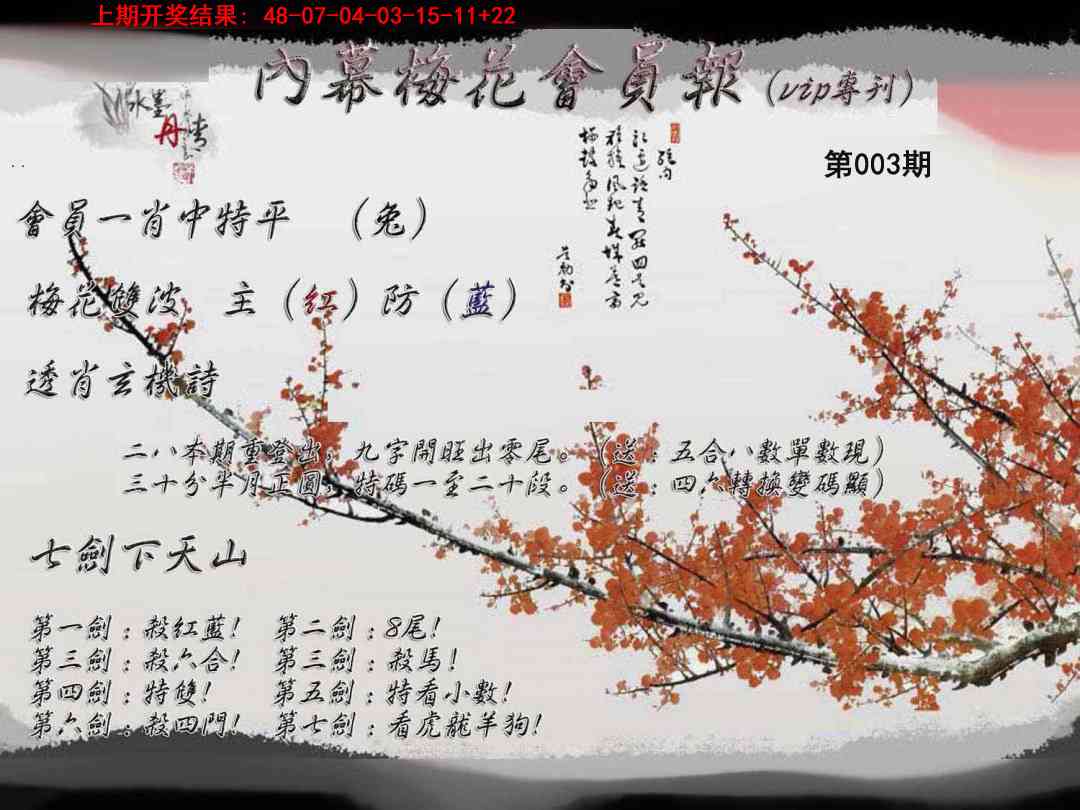 上期开奖结果: 48-07-04-03-15-11+22
內幕梅花會員報(vip專刊)
水墨
丹青
第003期
會員一肖中特平 (兔)
梅花雙波 主(紅)防(藍)
透肖玄機詩
二八本期重登出,九字開旺出零尾。(送:五合八數單數現)
三十分半月正圓,特碼一至二十段。(送:四六轉換變碼顯)
七劍下天山
第一劍:殺紅藍! 第二劍:8尾!
第三劍:殺六合! 第三劍:殺馬!
第四劍:特雙! 第五劍:特看小數!
第六劍:殺四門! 第七劍:看虎龍羊狗!